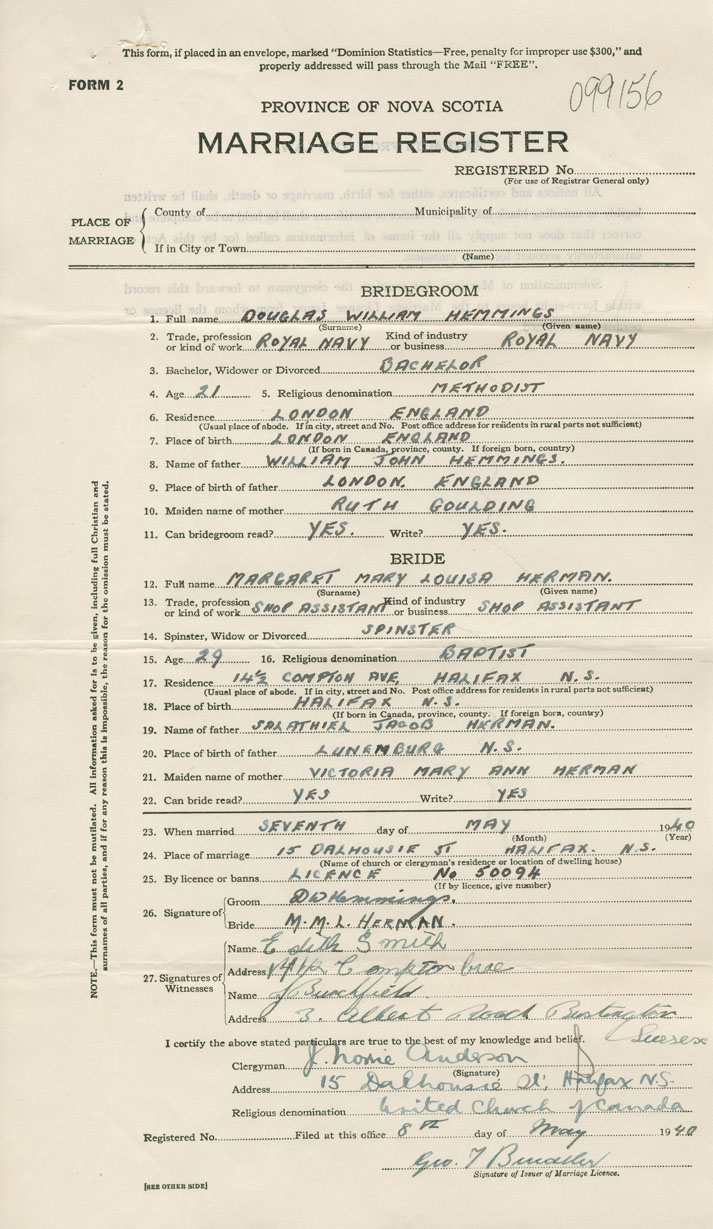 This form, if placed in an envelope, marked "Dominion Statistics—Free, penalty for improper use $300," and
properly addressed will pass through the Mail "FREE".
FORM 2
099156
PROVINCE OF NOVA SCOTIA
MARRIAGE REGISTER
REGISTERED No.
(For use of Registrar General only)
PLACE OF MARRIAGE
County of Municipality of
If in City or Town
(Name)
BRIDEGROOM
1. Full name DOUGLAS WILLIAM HEMMINGS
(Surname) (Given name)
2. Trade, profession or kind of work ROYAL NAVY Kind of industry or business ROYAL NAVY
3. Bachelor, Widower or Divorced BACHELOR
4. Age 21 5. Religious denomination METHODIST
6. Residence LONDON ENGLAND
(Usual place of abode. If in city, street and No. Post office address for residents in rural parts not sufficient)
7. Place of birth LONDON ENGLAND
(If born in Canada, province, county. If foreign born, country)
8. Name of father WILLIAM JOHN HEMMINGS.
9. Place of birth of father LONDON. ENGLAND
10. Maiden name of mother RUTH GOULDING
11. Can bridegroom read? YES. Write? YES.
BRIDE
12. Full name MARGARET MARY LOUISA HERMAN.
(Surname) (Given name)
13. Trade, profession or kind of work SHOP ASSISTANT Kind of industry or business SHOP ASSISTANT
14. Spinster, Widow or Divorced SPINSTER
15. Age 29 16. Religious denomination BAPTIST
17. Residence 14½ COMPTON AVE, HALIFAX N.S.
(Usual place of abode. If in city, street and No. Post office address for residents in rural parts not sufficient)
18. Place of birth HALIFAX N.S.
(If born in Canada, province, county. If foreign born, country)
19. Name of father SALATHIEL JACOB HERMAN.
20. Place of birth of father LUNEMBURG N.S.
21. Maiden name of mother VICTORIA MARY ANN HERMAN
22. Can bride read? YES Write? YES
23. When married SEVENTH day of MAY 1940
(Month) (Year)
24. Place of marriage 15 DALHOUSIE ST HALIFAX. N.S.
(Name of church or clergyman's residence or location of dwelling house)
25. By licence or banns LICENCE No 50094
(If by licence, give number)
26. Signature of
Groom DWHemmings.
Bride M.M.L. HERMAN.
27. Signatures of Witnesses
Name Edith Smith
Address 14½ Compton Ave
Name J Burchfield.
Address 3. Albert Road
Sussex
I certify the above stated particulars are true to the best of my knowledge and belief.
Clergyman J. Anderson
(Signature)
Address 15 Dalhousie St; Halifax N.S.
Religious denomination United Church of Canada
Registered No. Filed at this office 8th day of May 1940
Geo. T
Signature of Issuer of Marriage Licence.
[SEE OTHER SIDE]
NOTE.—This form must not be mutilated. All information asked for is to be given, including full Christian and
surnames of all parties, and if for any reason this is impossible, the reason for the omission must be stated.